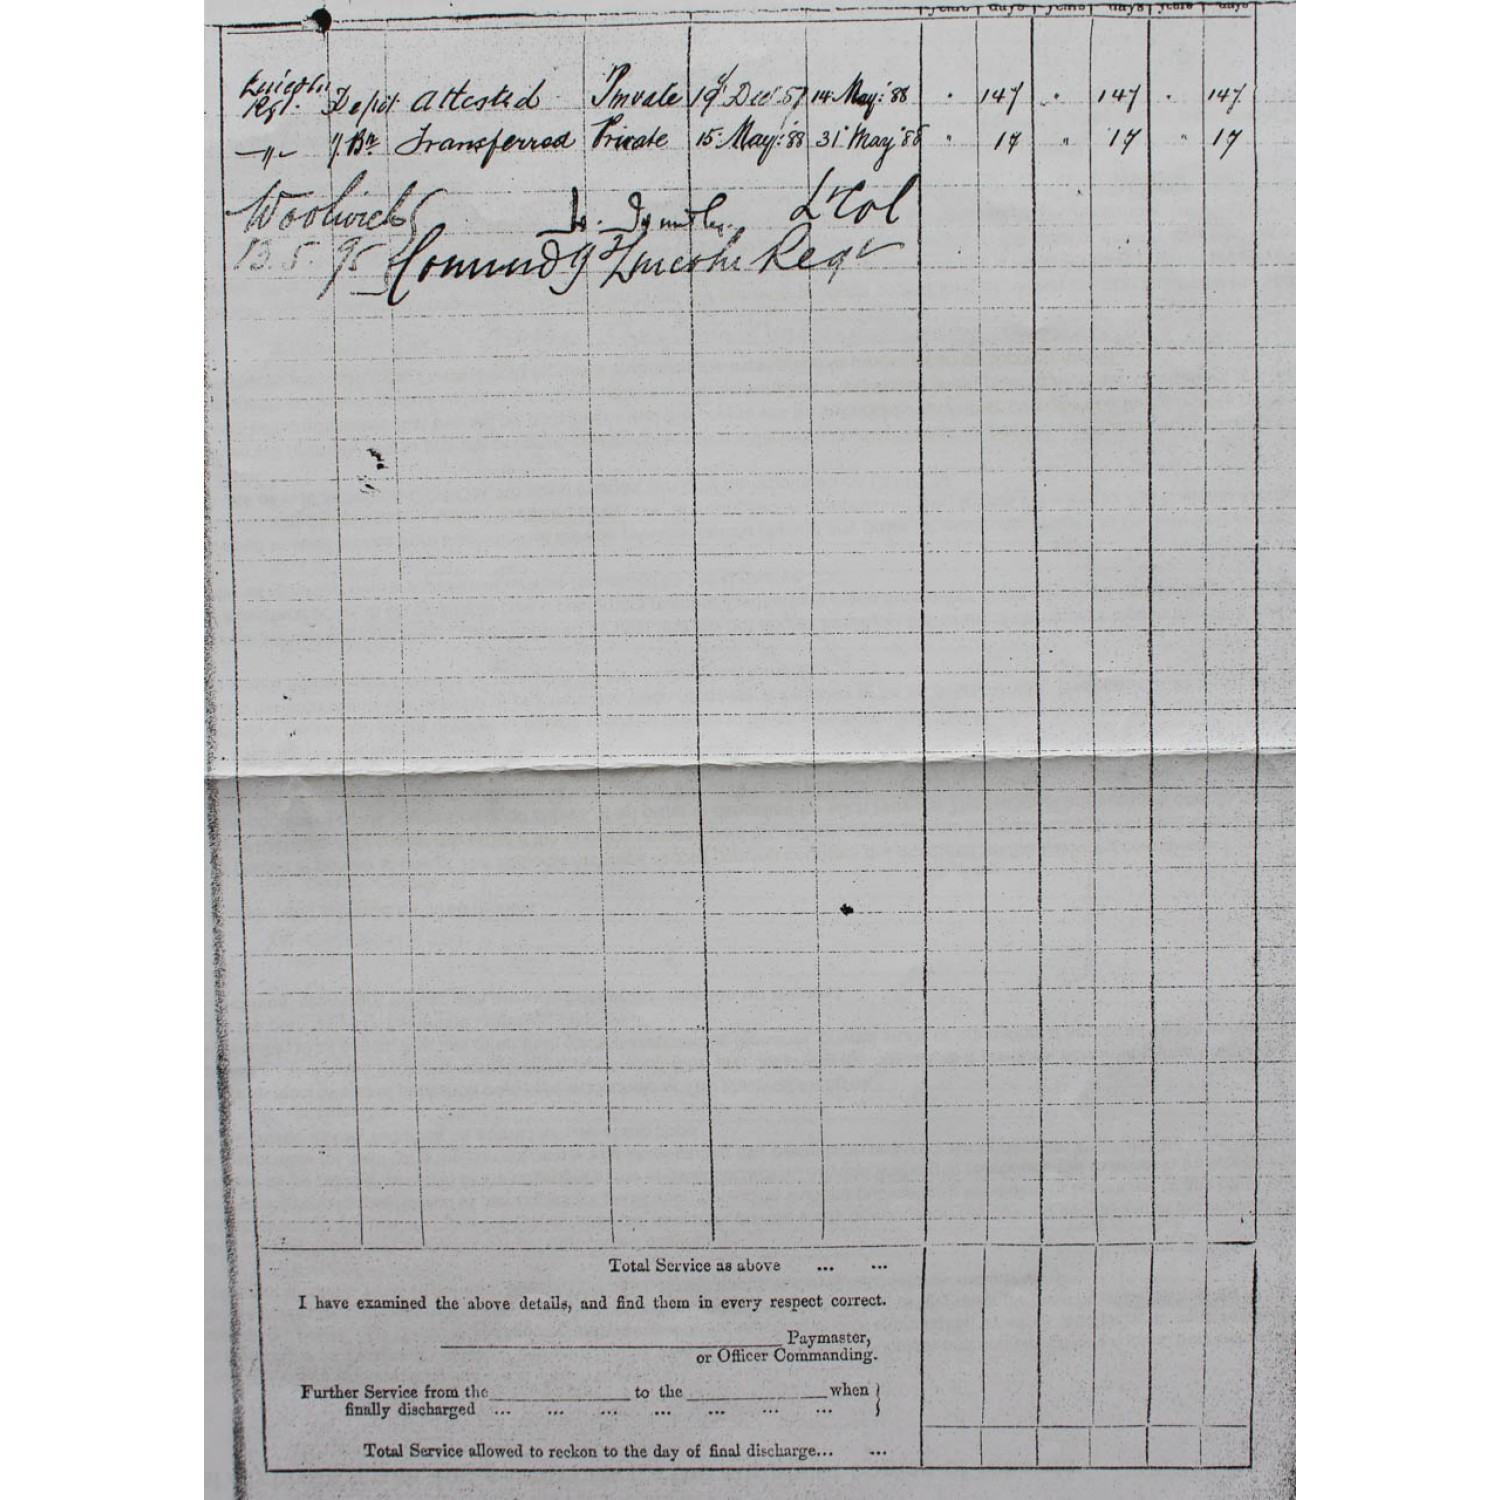 years days years days years days
Lincoln
Rgt. Depôt Attested Private 19 Dec 87 14 May '88 " 147 " 147 " 147
—"— 1. Bn Transferred Private 15 May '88 31 May '88 " 17 " 17 " 17
Woolwich Lt Col
13.5.95 Commdg Lincoln Regt
Total Service as above ... ...
I have examined the above details, and find them in every respect correct.
Paymaster,
or Officer Commanding.
Further Service from the to the when }
finally discharged ... ... ... ... ... ... ...
Total Service allowed to reckon to the day of final discharge... ...